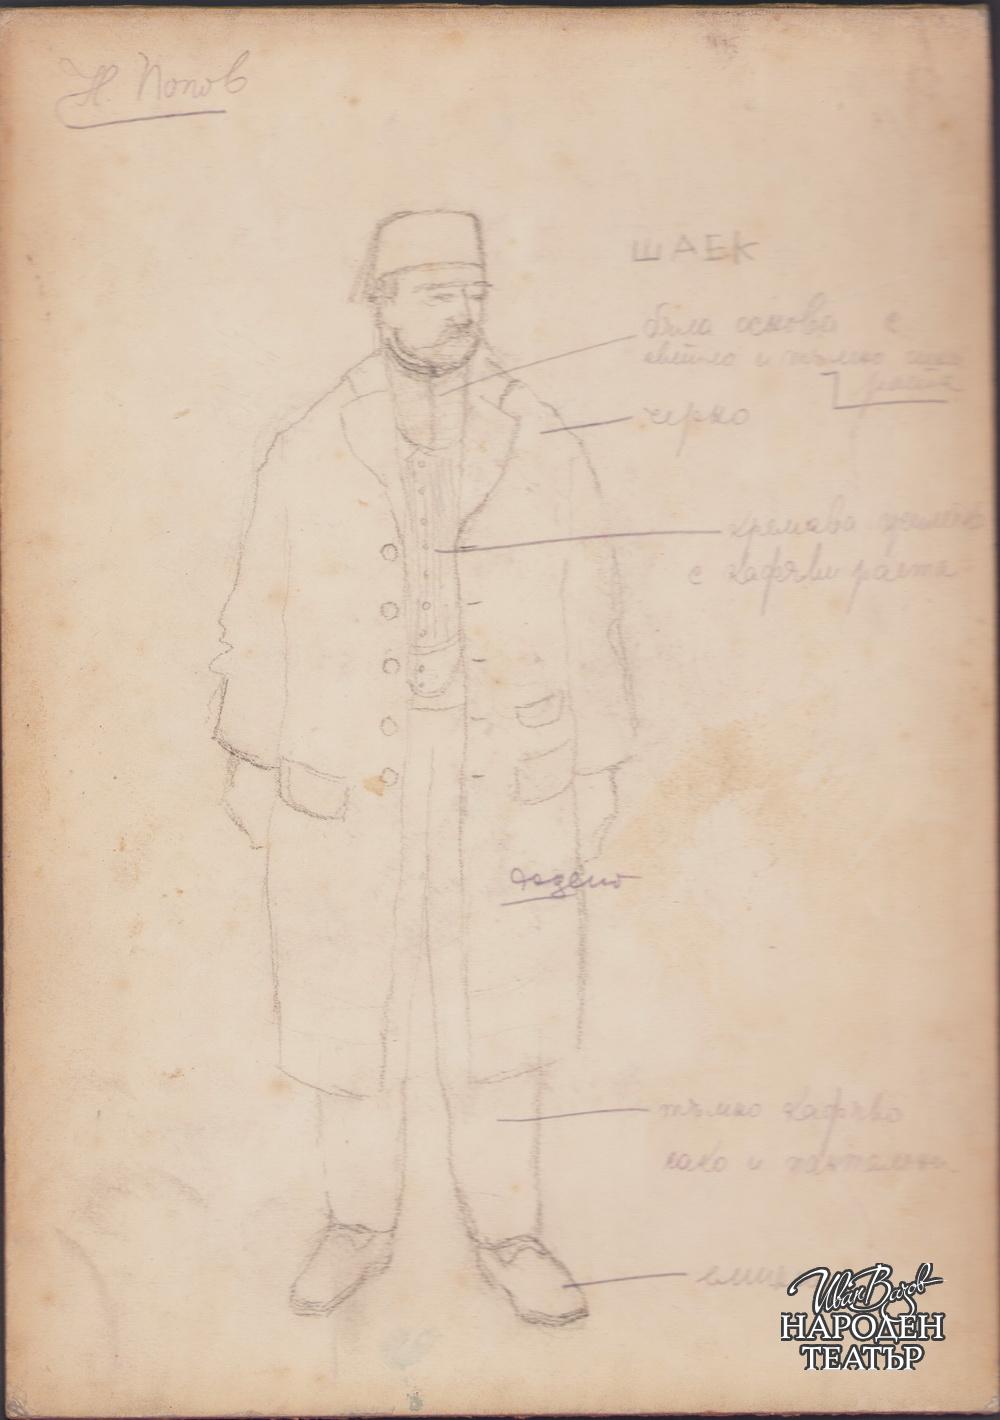 Н. Попов
ШАЕК
бяла основа с
светло и тъмно
райе
черно
кремава жилетка
с кафяви райета
дадено
тъмно кафяво
сако и панталони
Иван Вазов
НАРОДЕН
ТЕАТЪР